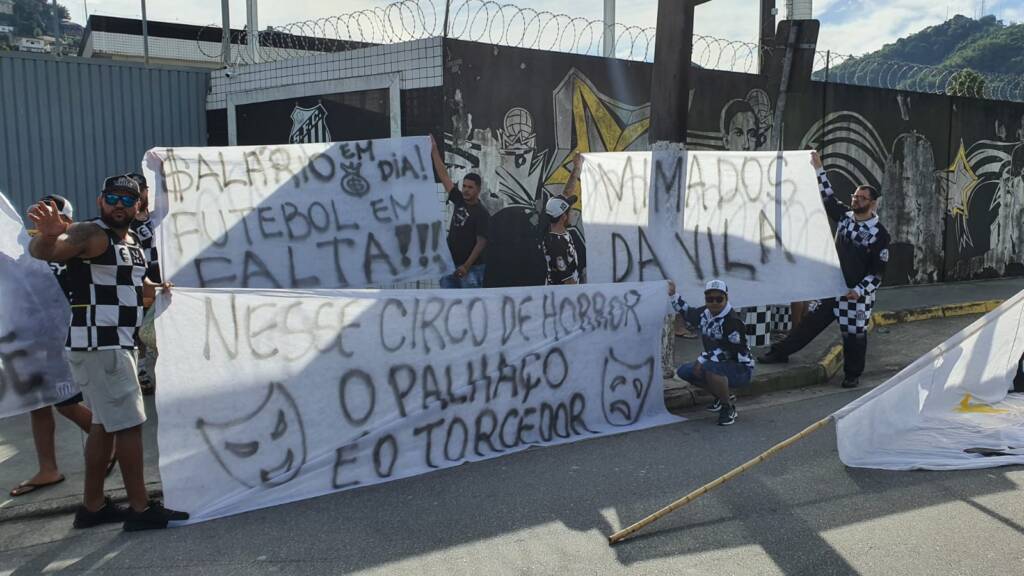 $ALÁRIO EM DIA!
FUTEBOL EM
FALTA!!!
MIMADOS
DA VILA
NESSE CIRCO DE HORROR
O PALHAÇO
É O TORCEDOR